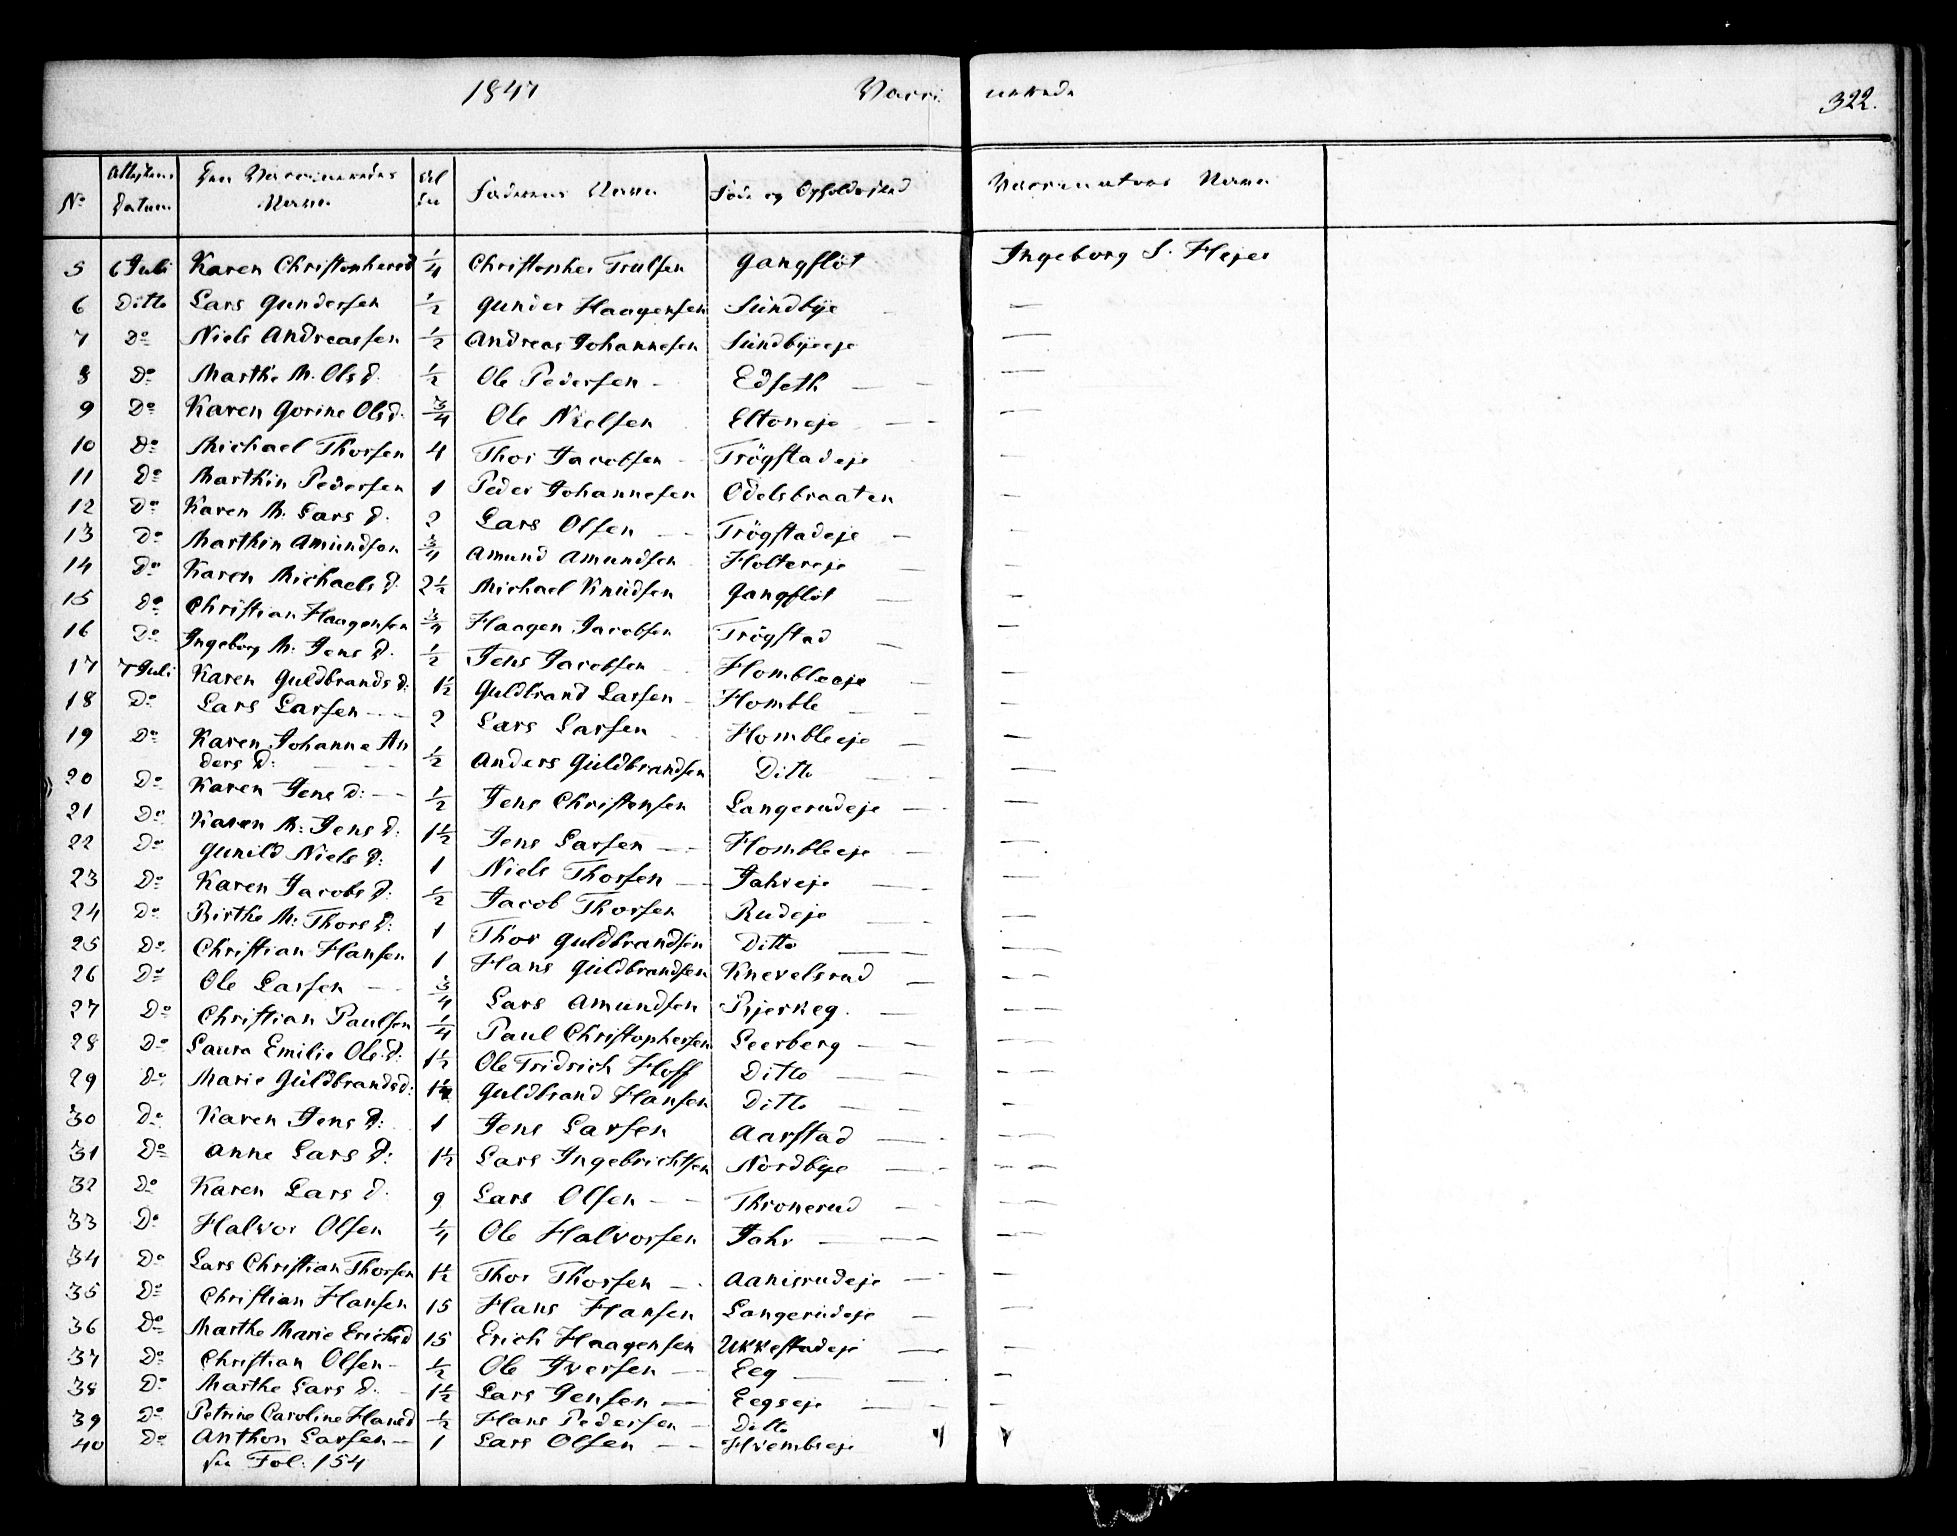 1847 Vacci nerede 322.
No Attestens Datum Den Vaccineredes Navn Al der Faderens Navn Føde og Opholdssted Vaccinateurs Navn
5 6 Juli Karen Christophersd 1/4 Christopher Trulsen Gangflöt Ingeborg S. Hejer
6 Ditto Lars Gundersen 1/2 Gunder Haagensen Sundbye —
7 Do Niels Andreassen 1/2 Andreas Johannesen Sundbyeeje —
8 Do Marthe M. Ols d. 1/2 Ole Pedersen - Edseth —
9 Do Karen Gorine Olsd. 3/4 Ole Nielsen Eltoneje —
10 Do Michael Thorsen 4 Thor Jacobsen Trögstadeje —
11 Do Marthin Pedersen 1 Peder Johannesen Odelsbraaten —
12 Do Karen M. Lars d. 2 Lars Olsen — Trögstadeje —
13 Do Marthin Amundsen 3/4 Amund Amundsen Holtereje —
14 Do Karen Michaels d. 2 1/2 Michael Knudsen Gangflöt —
15 Do Christian Haagensen 3/4 Haagen Jacobsen Trögstad —
16 Do Ingeborg M. Jens d. 1/2 Jens Jacobsen Hombleeje —
17 7 Juli Karen Guldbrands d: 1 1/2 Guldbrand Larsen - Homble —
18 Do Lars Larsen - - 2 Lars Larsen Hombleeje —
19 Do Karen Johanne An
ders d: 1/2 Anders Guldbrandsen Ditto —
20 Do Karen Jens d: - - 1/2 Jens Christensen Langerudeje —
21 Do Karen M: Jens d: 1 1/2 Jens Larsen — Hombleeje —
22 Do Gunild Niels d: 1 Niels Thorsen — Jahreje —
23 Do Karen Jacobs d: 1/2 Jacob Thorsen Rudeje —
24 Do Birthe M: Thors d: 1 Thor Guldbrandsen Ditto —
25 Do Christian Hansen 1 Hans Guldbrandsen Knevelsrud —
26 Do Ole Larsen — 3/4 Lars Amundsen Bjerkeg. —
27 Do Christian Paulsen 1/4 Paul Christophersen Leerberg —
28 Do Laura Emilie Ols.d. 1 1/2 Ole Fridrich Hoff Ditto —
29 Do Marie Guldbrandsd: 1 1/4 Guldbrand Hansen Ditto —
30 Do Karen Jens d: 1 Jens Larsen Aarstad —
31 Do Anne Lars d: 1 1/2 Lars Ingebrichtsen Nordbye —
32 Do Karen Lars d. 9 Lars Olsen - - Thronerud —
33 Do Halvor Olsen 1/4 Ole Halvorsen Jahr —
34 Do Lars Christian Thorsen 1 1/2 Thor Thorsen — Aanisrudeje —
35 Do Christian Hansen 15 Hans Hansen Langerudeje —
36 Do Marthe Marie Erichsd 15 Erich Haagensen Ukkestadeje —
37 Do Christian Olsen - 1/2 Ole Iversen — Eeg —
38 Do Marthe Lars d. 1 1/2 Lars Jensen — Eegseje —
39 Do Petrine Caroline Hansd 1/2 Hans Pedersen - Ditto
40 Do Anthon Larsen - 1 Lars Olsen - - Hvembseje "
see Fol: 154